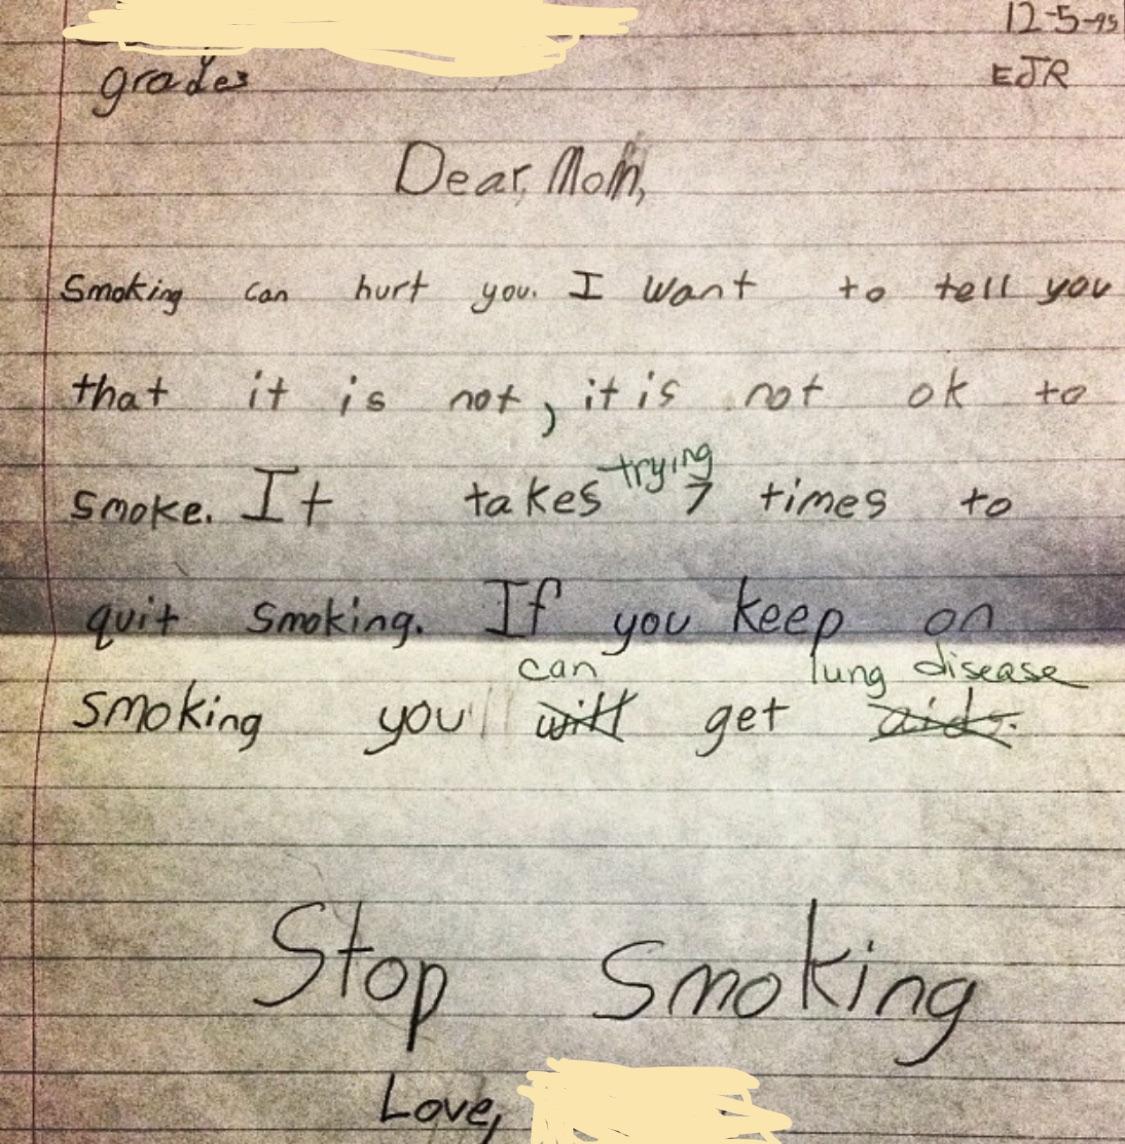 12-5-95
grades
EJR
Dear, Mom,
Smoking can hurt you. I want to tell you
that it is not, it is not ok to
trying
smoke. It takes 7 times to
quit smoking. If you keep on
can lung disease
smoking you will get aids.
Stop Smoking
Love,